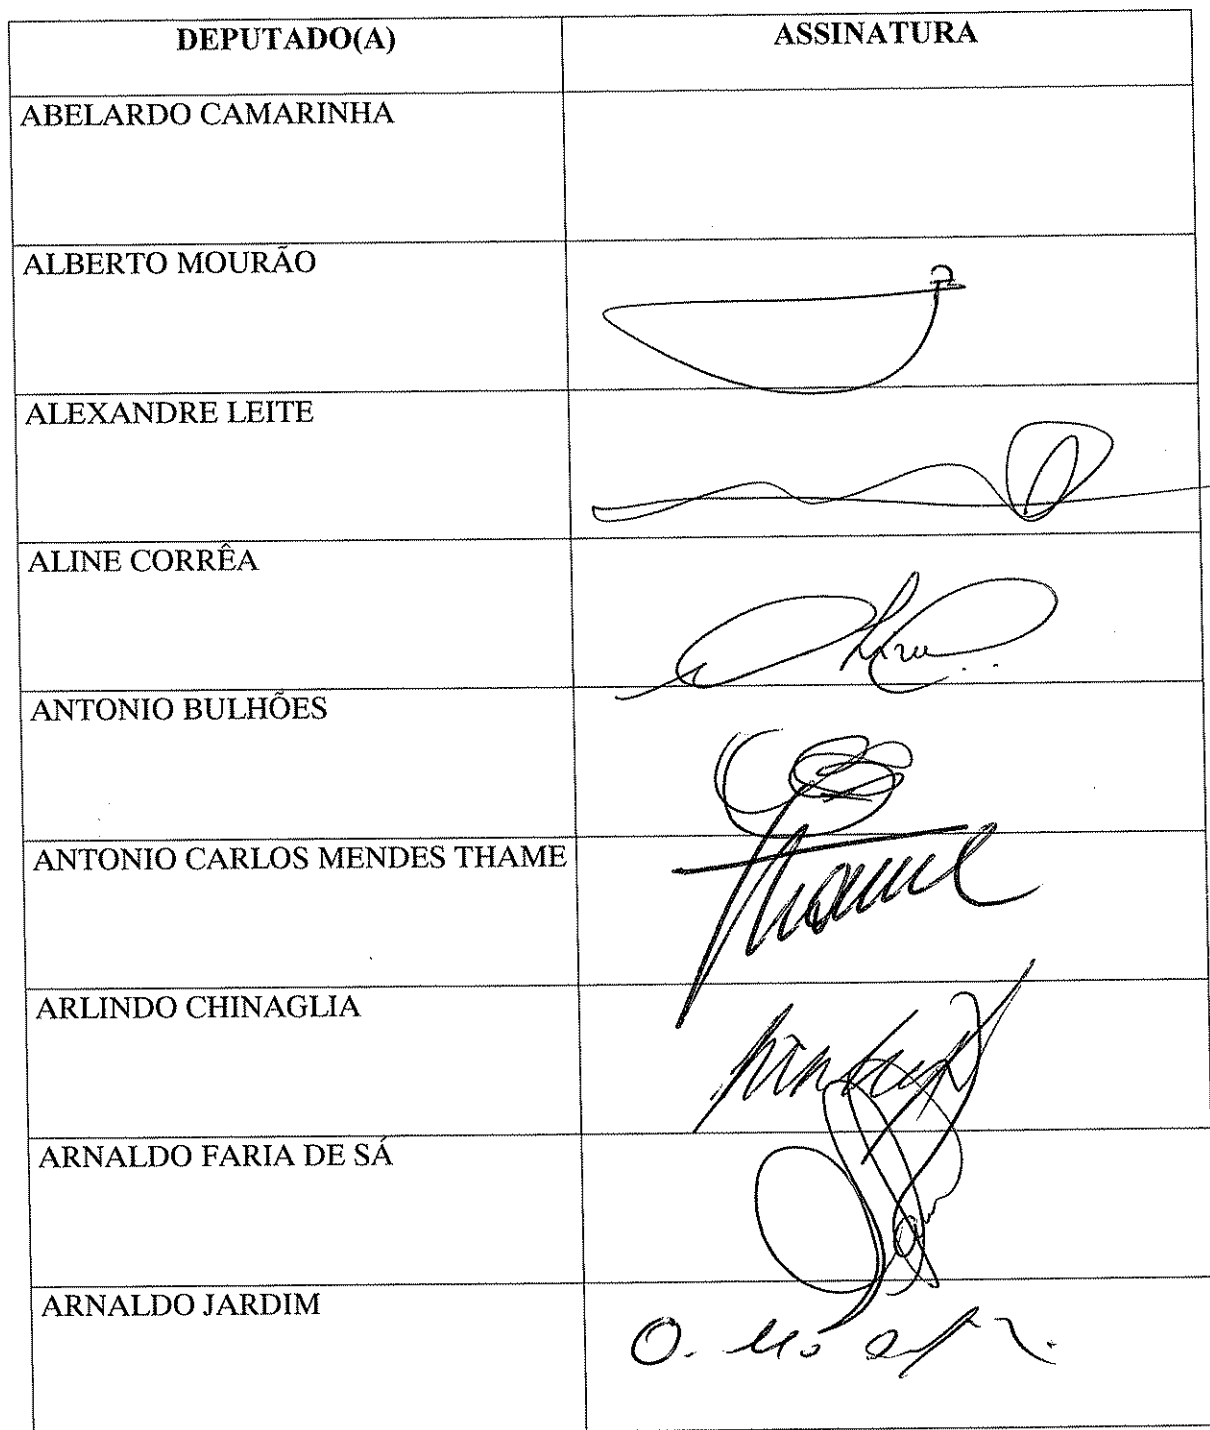 DEPUTADO(A) ASSINATURA
ABELARDO CAMARINHA
ALBERTO MOURÃO
ALEXANDRE LEITE
ALINE CORRÊA
ANTONIO BULHÕES
ANTONIO CARLOS MENDES THAME
Thame
ARLINDO CHINAGLIA
ARNALDO FARIA DE SÁ
ARNALDO JARDIM